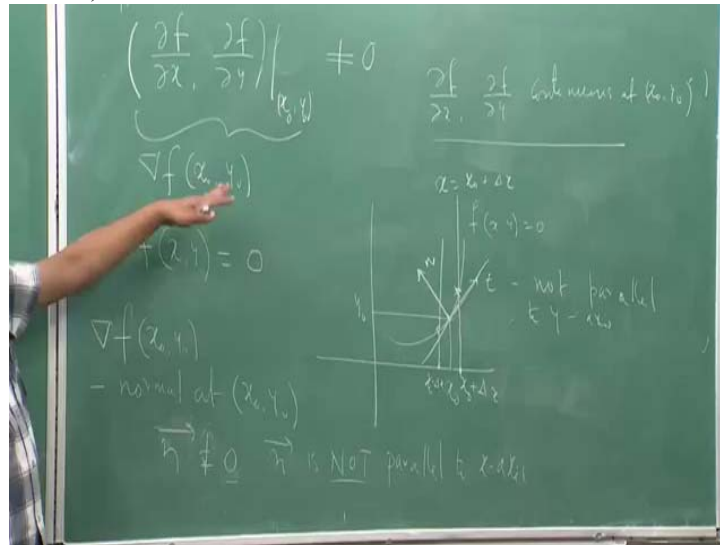 (∂f/∂x, ∂f/∂y)|(x₀, y₀) ≠ 0
∇f(x₀, y₀)
f(x, y) = 0
∇f(x₀, y₀)
- normal at (x₀, y₀)
n⃗ ≠ 0 n⃗ is NOT parallel to x-axis
∂f/∂x, ∂f/∂y continuous at (x₀, y₀)
x = x₀ + Δx
f(x, y) = 0
N
t - not parallel
to y-axis
y₀
x₀ x₀+Δx